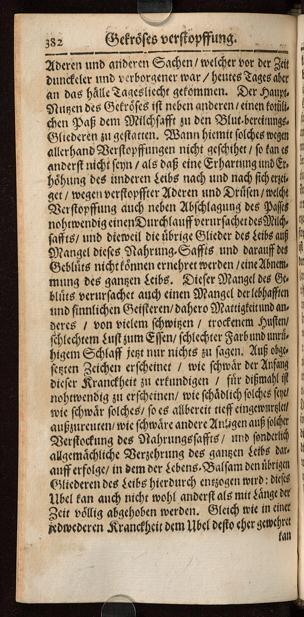 382 Gekröses verstopffung.
Aderen und anderen Sachen / welcher vor der Zeit
dunckeler und verborgener war / heutes Tages aber
an das hälle Tagesliecht gekommen. Der Haupt-
Nutzen des Gekröses ist neben anderen / einen
chen Paß dem Milchsafft zu den Blut-bereitungs-
Gliederen zu gestatten. Wann hiemit solches wegen
allerhand Verstopffungen nicht geschihet / so kan es
anderst nicht seyn / als daß eine Erhartung und Er-
höhung des underen Leibs nach und nach sich erzei-
get / wegen verstopffter Aderen und Drüsen / welche
Verstopffung auch neben Abschlagung des Passes
nohtwendig einen Durchlauff verursachet des Milch-
saffts / und dieweil die übrige Glieder des Leibs auß
Mangel dieses Nahrung-Saffts und darauff des
Geblüts nicht können ernehret werden / eine Abnem-
mung des gantzen Leibs. Dieser Mangel des Ge-
blüts verursachet auch einen Mangel der lebhafften
und sinnlichen Geisteren / dahero Mattigkeit und an-
deres / von vielem schwitzen / trockenem Husten /
schlechtem Lust zum Essen / schlechter Farb und unrü-
higem Schlaff jetzt nur nichts zu sagen. Auß obge-
setzten Zeichen erscheinet / wie schwär der Anfang
dieser Kranckheit zu erkundigen / für dißmahl ist
nohtwendig zu erscheinen / wie schädlich solches seye /
wie schwär solches / so es allbereit tieff eingewurtzlet /
außzureuten / wie schwäre andere Anligen auß solcher
Verstockung des Nahrungssaffts / und sonderlich
allgemächliche Verzehrung des gantzen Leibs dar-
auff erfolge / in dem der Lebens-Balsam den übrigen
Gliederen des Leibs hierdurch entzogen wird: dieses
Ubel kan auch nicht wohl anderst als mit Länge der
Zeit völlig abgehoben werden. Gleich wie in einer
jedwederen Kranckheit dem Ubel desto eher gewehret
kan